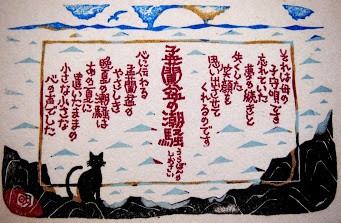 それは母の
子守唄です
忘れていた
夢の続きと
失くした
笑顔も
思い出させて
くれるのです
盂蘭盆の潮騒
うらぼんの
しおさい
心に伝わる
盂蘭盆の
やさしき
晩夏の潮騒は
あの夏に
置いたままの
小さな小さな
心の声でした